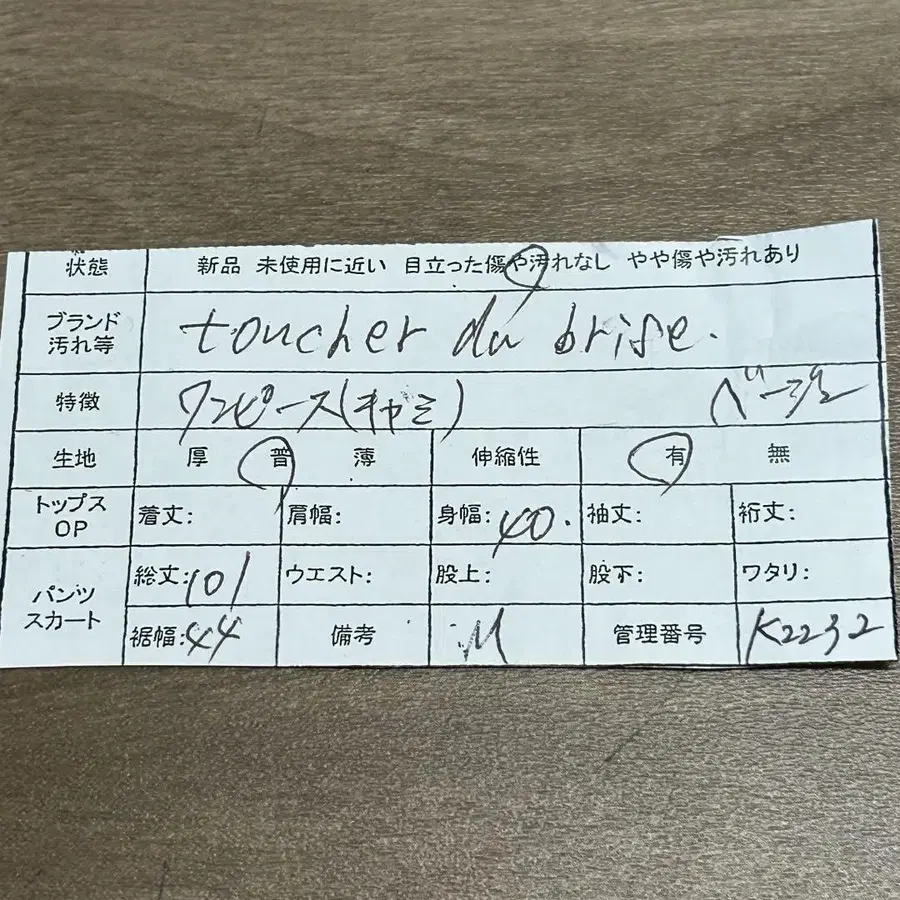 状態 新品 未使用に近い 目立った傷や汚れなし やや傷や汚れあり
ブランド
汚れ等 toucher du brise.
特徴 ワンピース(キャミ) ベージュ
生地 厚 普 薄 伸縮性 有 無
トップス
OP 着丈: 肩幅: 身幅:40. 袖丈: 裄丈:
パンツ
スカート 総丈:101 ウエスト: 股上: 股下: ワタリ:
裾幅:44 備考 M 管理番号 K2232